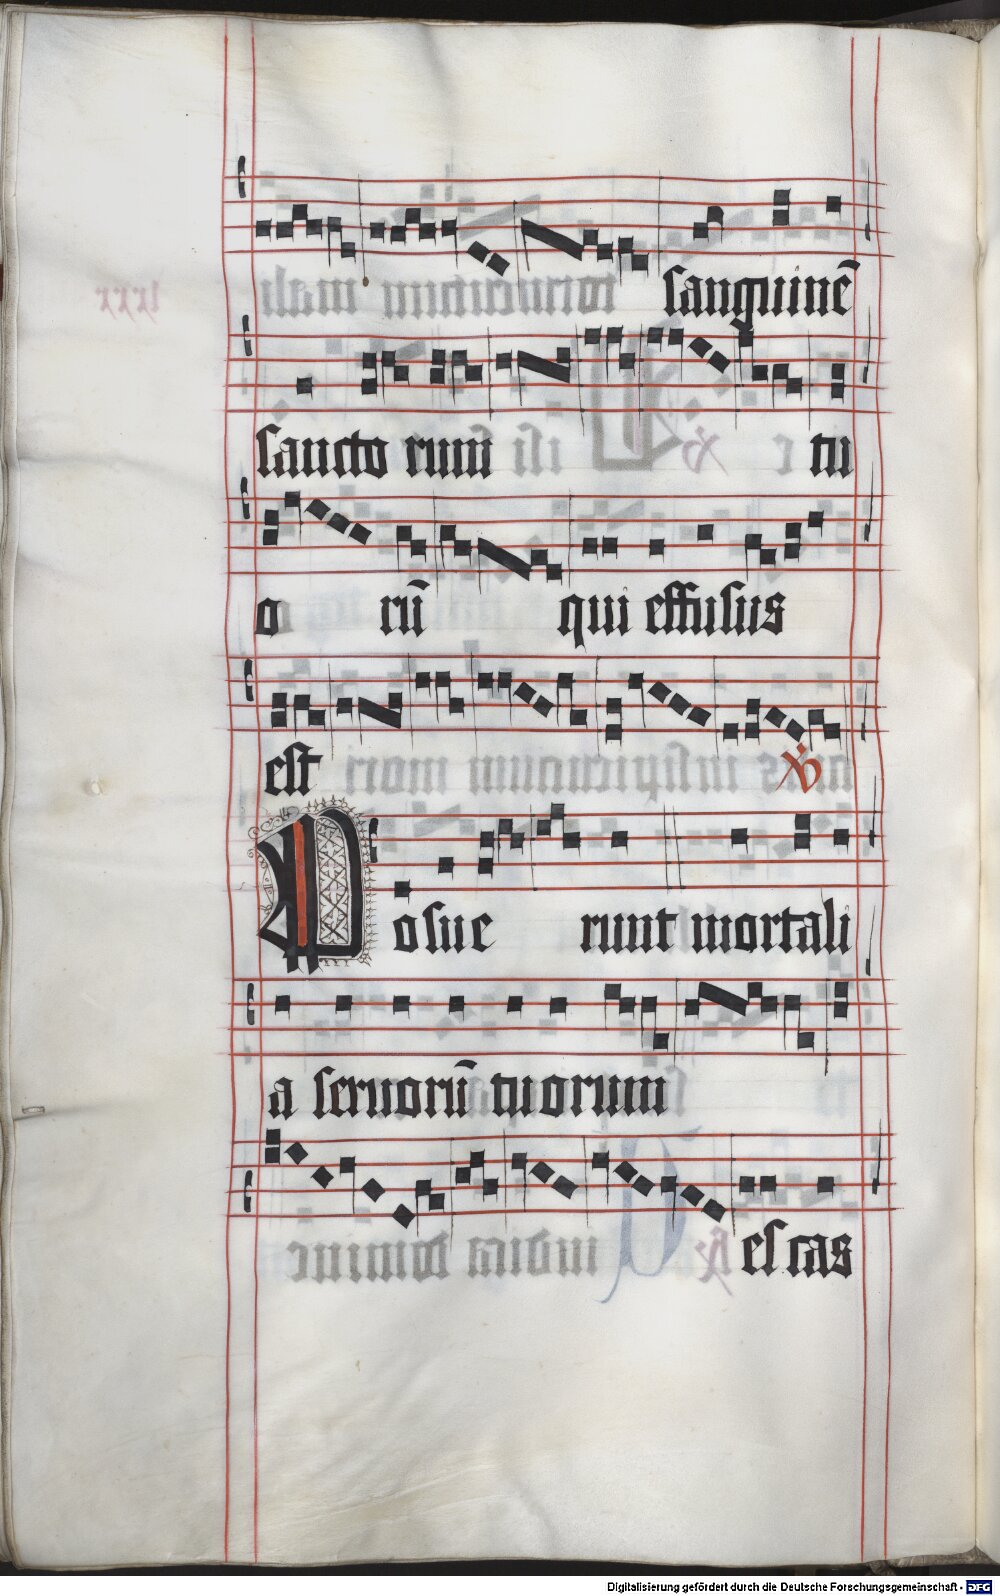 sanguinē
sancto rum tu
o rū qui effusus
est ℣
Posue runt mortali
a seruorū tuorum
escas
Digitalisierung gefördert durch die Deutsche Forschungsgemeinschaft - DFG